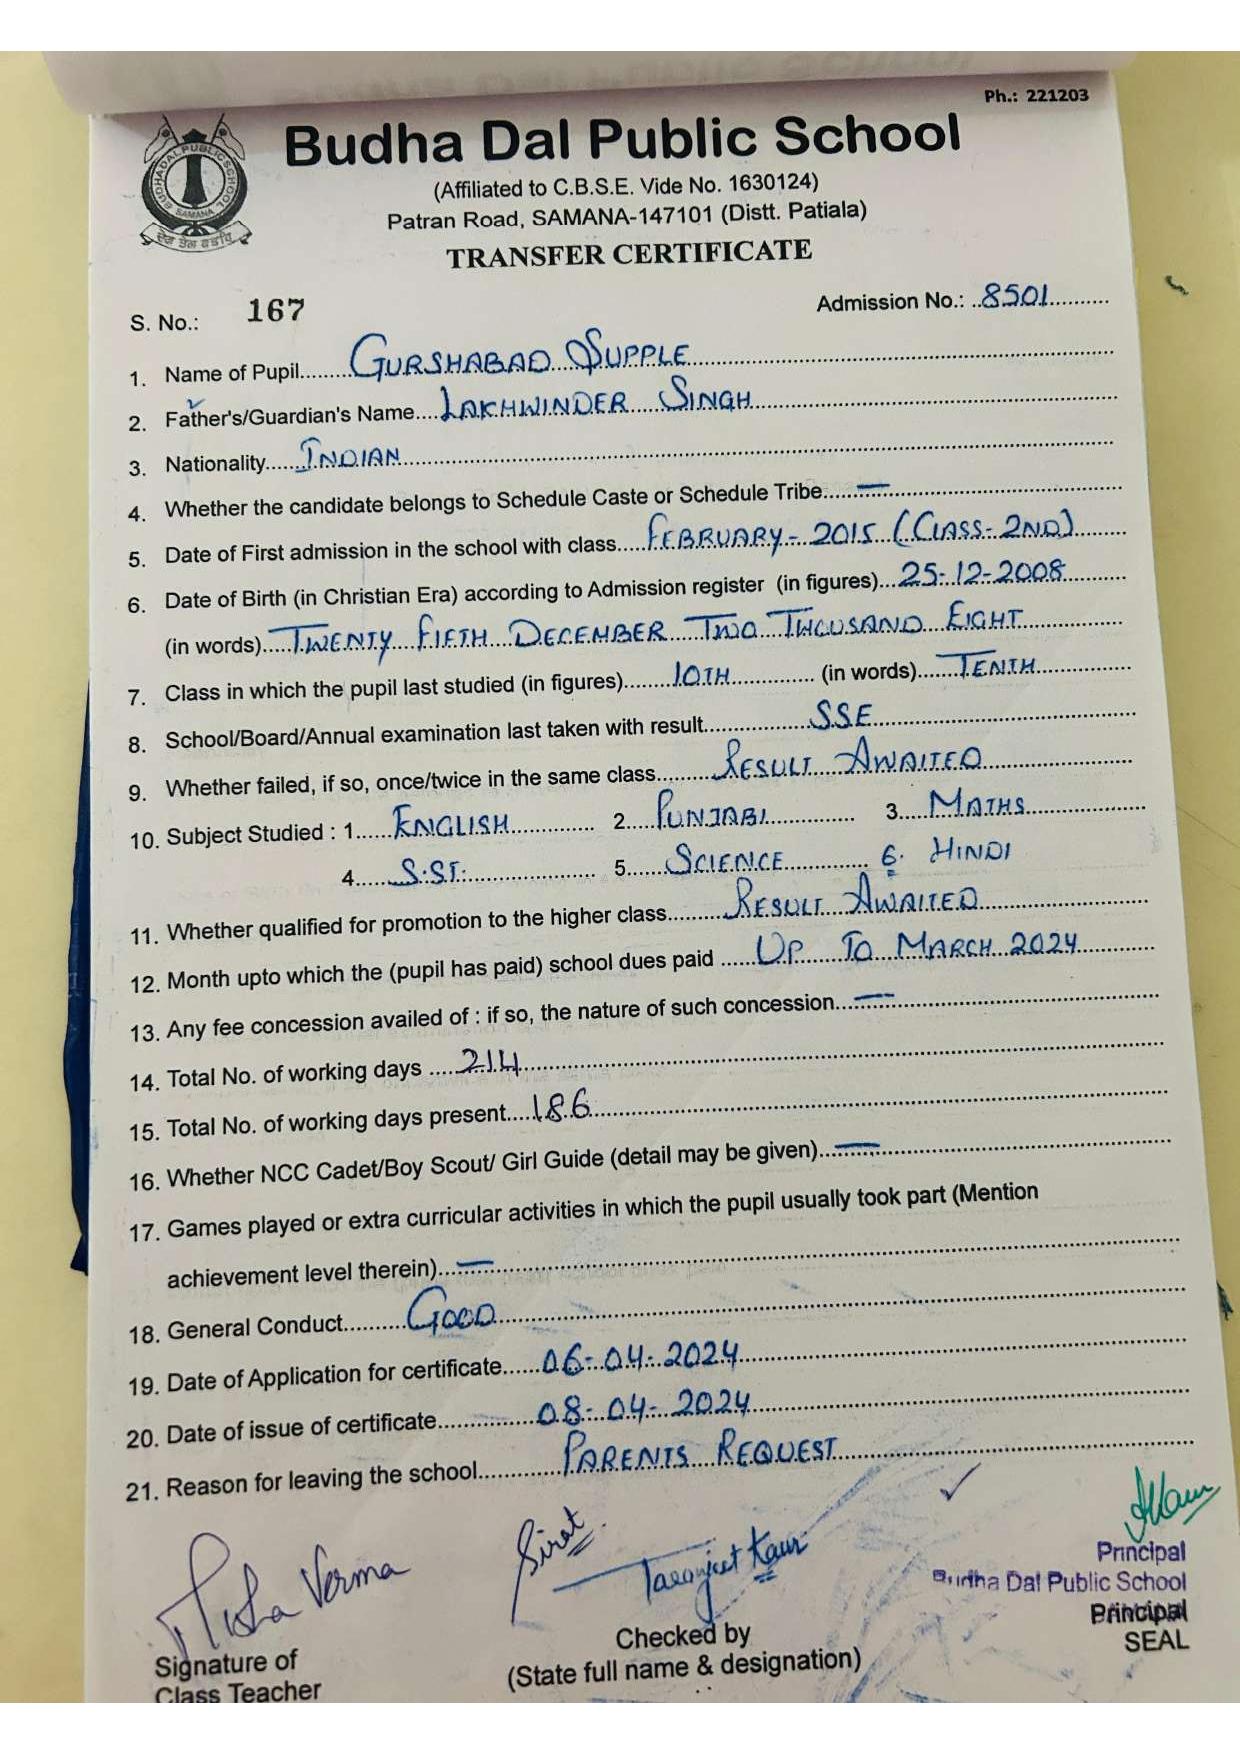 Ph.: 221203
BUDHA DAL PUBLIC SCHOOL
SAMANA
ਦੇਗ ਤੇਗ ਫਤਹਿ
Budha Dal Public School
(Affiliated to C.B.S.E. Vide No. 1630124)
Patran Road, SAMANA-147101 (Distt. Patiala)
TRANSFER CERTIFICATE
S. No.: 167 Admission No.: 8501
1. Name of Pupil GURSHABAD SUPPLE
2. Father's/Guardian's Name LAKHWINDER SINGH
3. Nationality INDIAN
4. Whether the candidate belongs to Schedule Caste or Schedule Tribe —
5. Date of First admission in the school with class FEBRUARY - 2015 (CLASS - 2ND)
6. Date of Birth (in Christian Era) according to Admission register (in figures) 25-12-2008
(in words) TWENTY FIFTH DECEMBER TWO THOUSAND EIGHT
7. Class in which the pupil last studied (in figures) 10TH (in words) TENTH
8. School/Board/Annual examination last taken with result SSE
9. Whether failed, if so, once/twice in the same class RESULT AWAITED
10. Subject Studied : 1 ENGLISH 2 PUNJABI 3 MATHS
4 S.ST. 5 SCIENCE 6. HINDI
11. Whether qualified for promotion to the higher class RESULT AWAITED
12. Month upto which the (pupil has paid) school dues paid UP TO MARCH 2024
13. Any fee concession availed of : if so, the nature of such concession —
14. Total No. of working days 214
15. Total No. of working days present 186
16. Whether NCC Cadet/Boy Scout/ Girl Guide (detail may be given) —
17. Games played or extra curricular activities in which the pupil usually took part (Mention
achievement level therein) —
18. General Conduct GOOD
19. Date of Application for certificate 06-04-2024
20. Date of issue of certificate 08-04-2024
21. Reason for leaving the school PARENTS REQUEST
Verma Sirat Taranjeet Kaur
Principal
Budha Dal Public School
Principal
SEAL
Signature of
Class Teacher
Checked by
(State full name & designation)